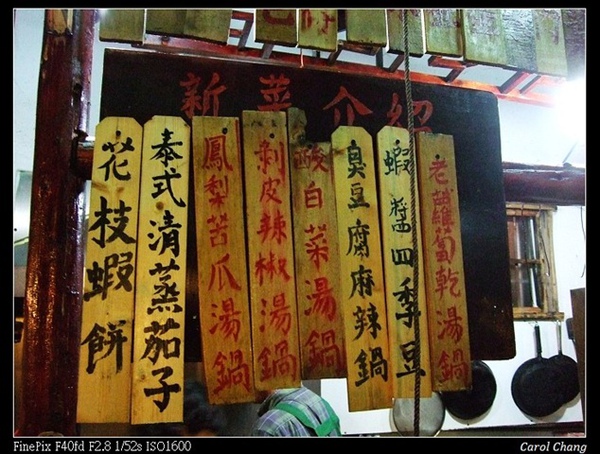 新菜介紹
花枝蝦餅
泰式清蒸茄子
鳳梨苦瓜湯鍋
剝皮辣椒湯鍋
酸白菜湯鍋
臭豆腐麻辣鍋
蝦醬四季豆
老蘿蔔乾湯鍋
FinePix F40fd F2.8 1/52s ISO1600
Carol Chang